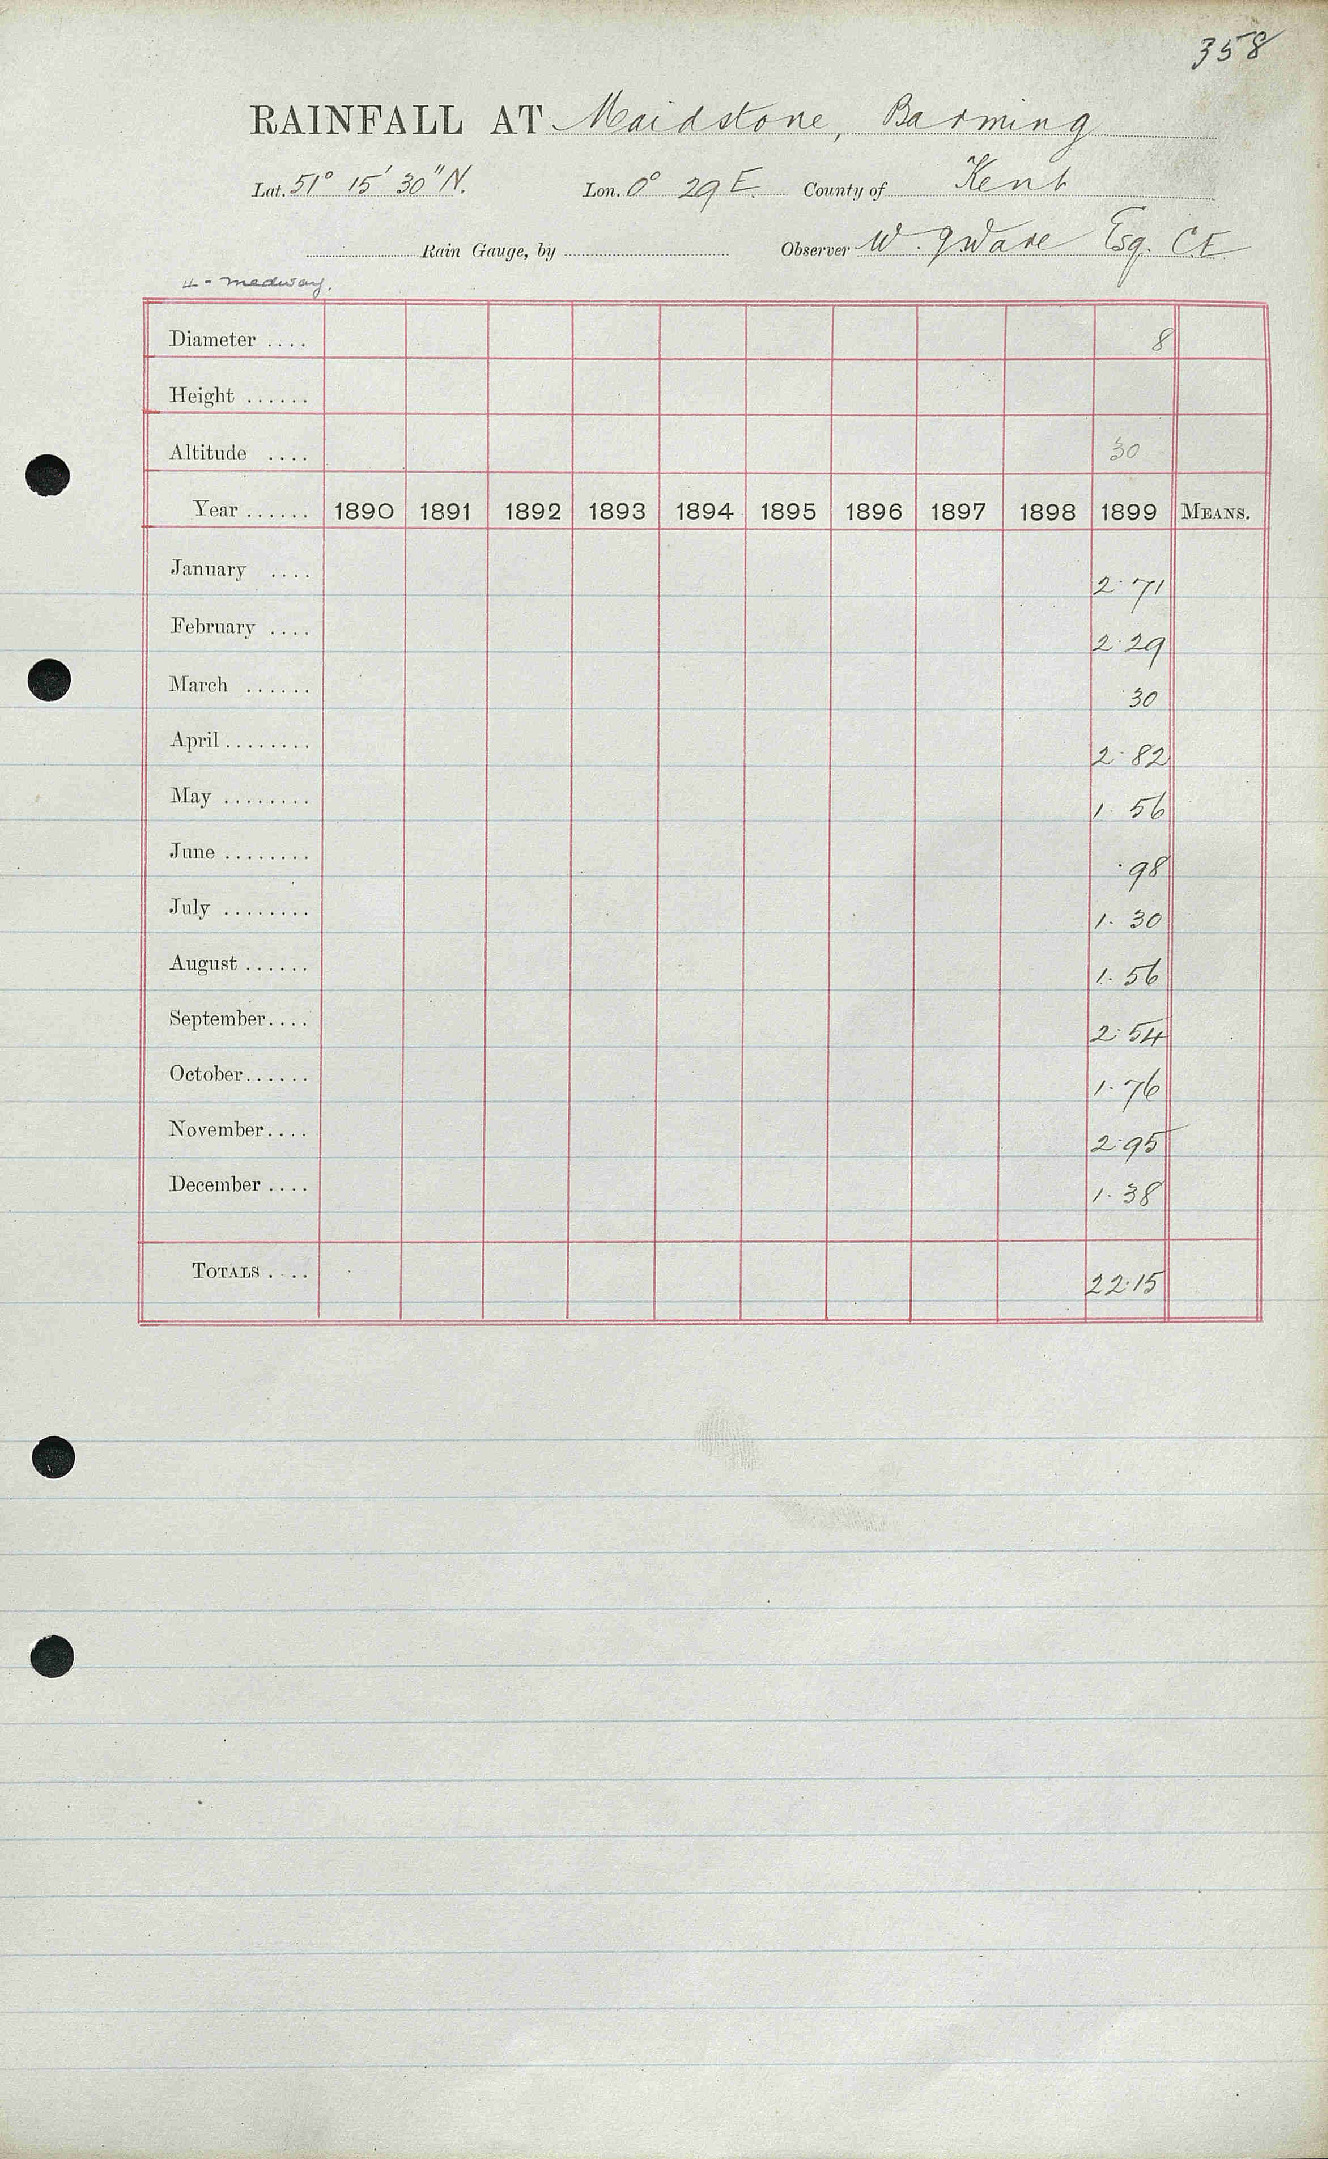 358
RAINFALL AT Maidstone, Barming
Lat. 51° 15' 30" N. Lon. 0° 29 E. County of Kent
Rain Gauge, by Observer W. J Ware Esq. C E
4 - Medway.
Diameter .... 8
Height ......
Altitude .... 30
Year ...... 1890 1891 1892 1893 1894 1895 1896 1897 1898 1899 MEANS.
January .... 2.71
February .... 2.29
March ...... 30
April ........ 2.82
May ........ 1.56
June ........ .98
July ........ 1.30
August ...... 1.56
September.... 2.54
October...... 1.76
November.... 2.95
December .... 1.38
TOTALS .... 22.15